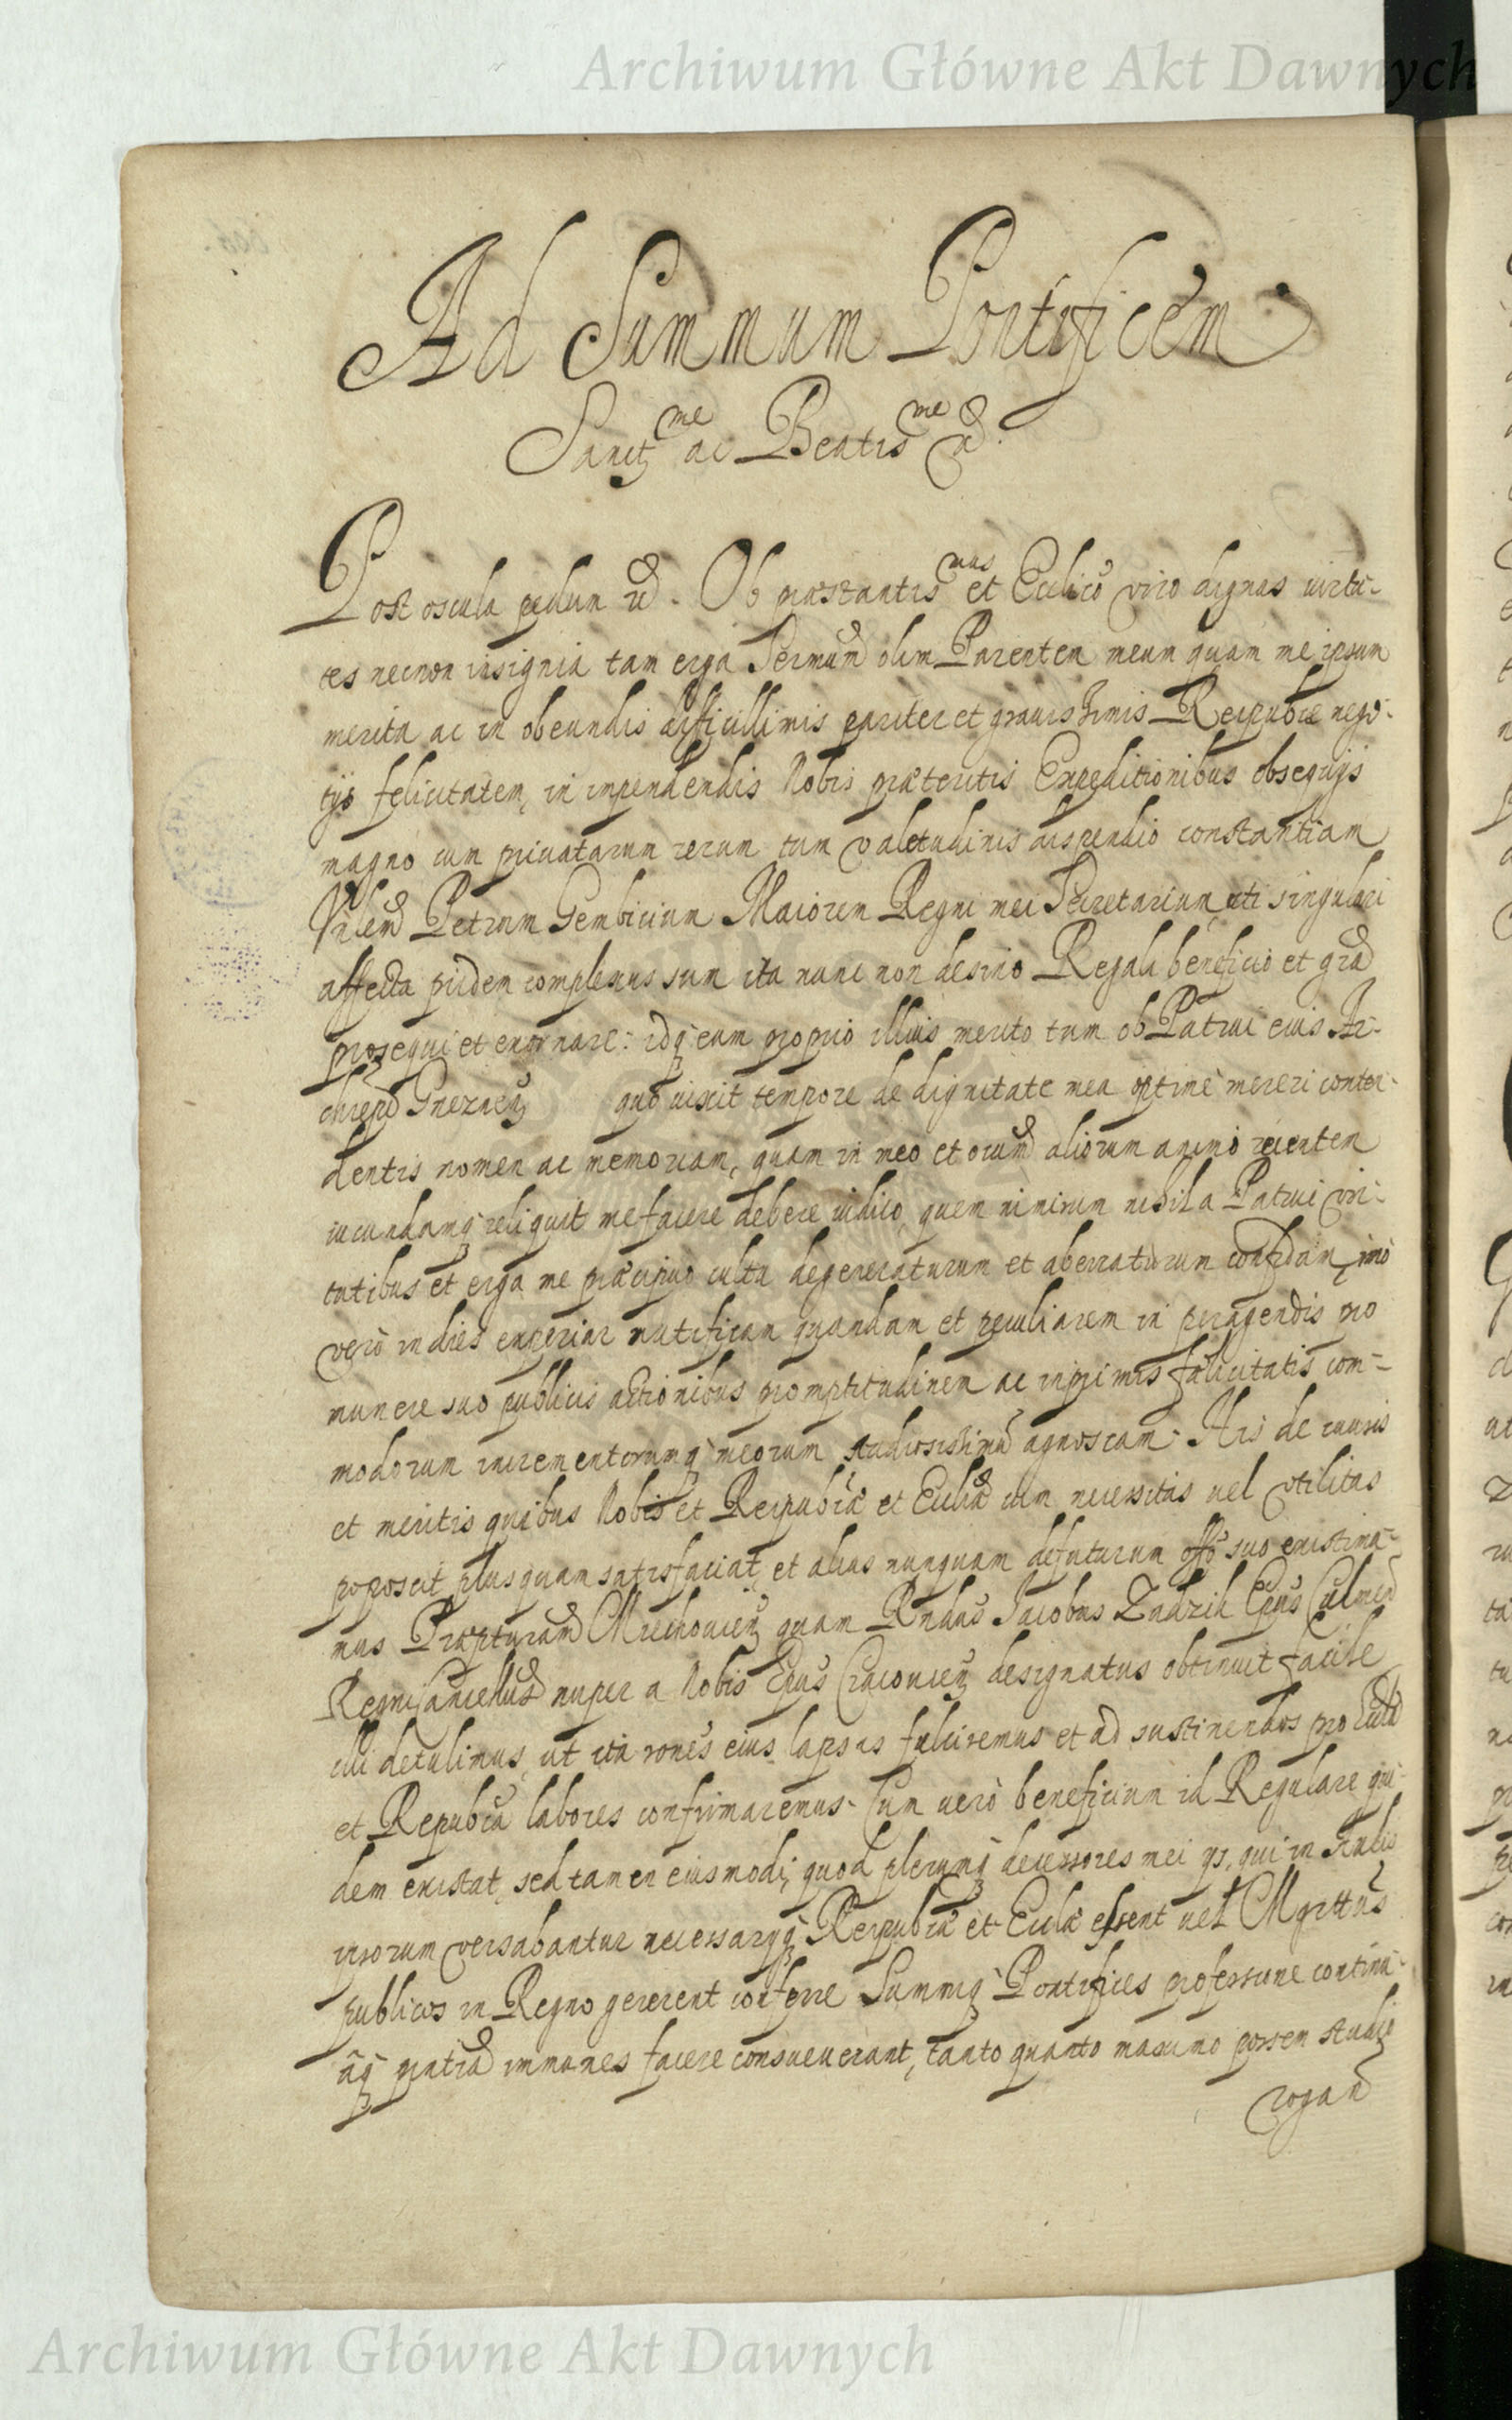 Archiwum Główne Akt Dawnych
Ad Summum Pontificem
Sanctme ac Beatisme
Post oscula pedum Ob præstantismas et Ecclico viro dignas uirtu-
tes necnon insignia tam erga Sermum olim Parentem meum quam me ipsum
merita ac in obeundis difficillimis pariter et grauissimis Reipublæ nego-
tijs felicitatem, in inpendendis Nobis præteritis Expeditionibus obsequijs
magno cum priuatarum rerum tum valetudinis dispendio constantiam
Petrum Gembicium Maiorem Regni mei Secretarium uti singulari
affectu pridem complexus sum ita nunc non desino Regali beneficio et gra
prosequi et exornare: idq eum proprio illius merito tum ob Patrui eius Ar-
chiepi Gneznen quo uixit tempore de dignitate mea optime mereri conten-
dentis nomen ac memoriam, quam in meo et oium aliorum animo recentem
iucundamq reliquit me facere debere iudico, quem nimirum nihil a Patrui vir-
tutibus et erga me præcipuo cultu degeneraturum et aberraturum confidam, imo
vero indies experiar mirificam quandam et peculiarem in peragendis pro
munere suo publicis actionibus promptitudinem ac inprimis fælicitatis com-
modorum incrementorumq meorum studiosissimu agnoscam. His de causis
et meritis quibus Nobis et Reipublæ et Ecclæ cum necessitas uel vtilitas
poposcit plusquam satisfaciat, et alias nunquam defuturum offo suo existima-
mus Præpturam Miechouien quam Rndus Jacobus Zadzik Epus Culmen
Regni Cancellus nuper a Nobis Epus Cracouien designatus obtinuit facile
illi detulimus, ut ita rones eius lapsas fulciremus et ad sustinendos pro Eccla
et Republa labores confirmaremus. Cum uero beneficium id Regulare qui-
dem existat, sed tamen eiusmodi, quod plerumq decessores mei ijs, qui in
ipsorum versabantur necessarijq Reipublæ et Ecclæ essent uel Mgrttus
publicos in Regno gererent conferre Summiq Pontifices professione continu-
aq immunes facere consueuerant, tanto quanto maximo possem studio
rogan
Archiwum Główne Akt Dawnych